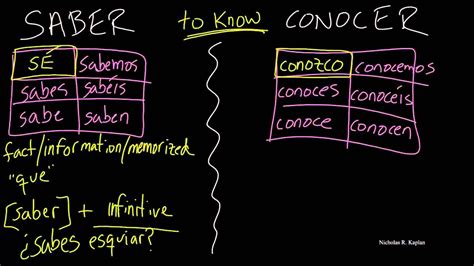 SABER to know CONOCER
SÉ sabemos
sabes sabéis
sabe saben
conozco conocemos
conoces conocéis
conoce conocen
fact/information/memorized
"que"
[saber] + infinitive
¿sabes esquiar?
Nicholas R. Kaplan